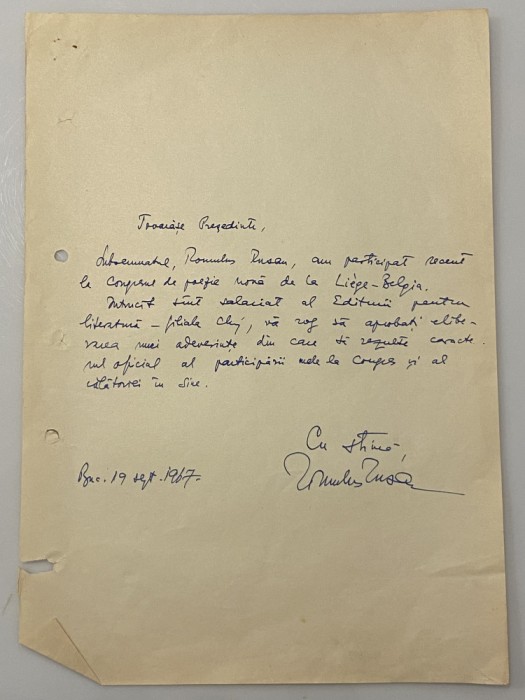 Tovarășe Președinte,
Subsemnatul, Romulus Rusan, am participat recent
la Congresul de poezie nouă de la Liège-Belgia.
Întrucît sînt salariat al Editurii pentru
literatură – filiala Cluj, vă rog să aprobați elibe-
rarea unei adeverințe din care să rezulte caracte-
rul oficial al participării mele la Congres și al
călătoriei în sine.
Cu stimă,
Buc. 19 sept. 1967.
Romulus Rusan